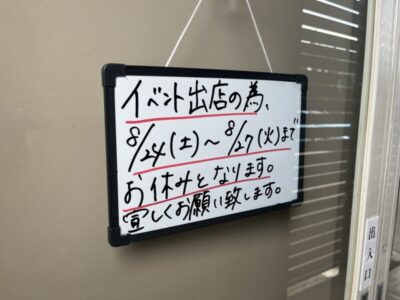 イベント出店の為、
8/24(土)〜8/27(火)まで
お休みとなります。
宜しくお願い致します。
出入口